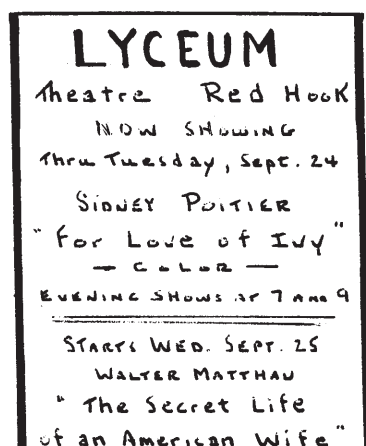 LYCEUM
Theatre Red Hook
NOW SHOWING
Thru Tuesday, Sept. 24
SIDNEY POITIER
"For Love of Ivy"
— COLOR —
EVENING SHOWS AT 7 AND 9
STARTS WED. SEPT. 25
WALTER MATTHAU
"The Secret Life
of an American Wife"